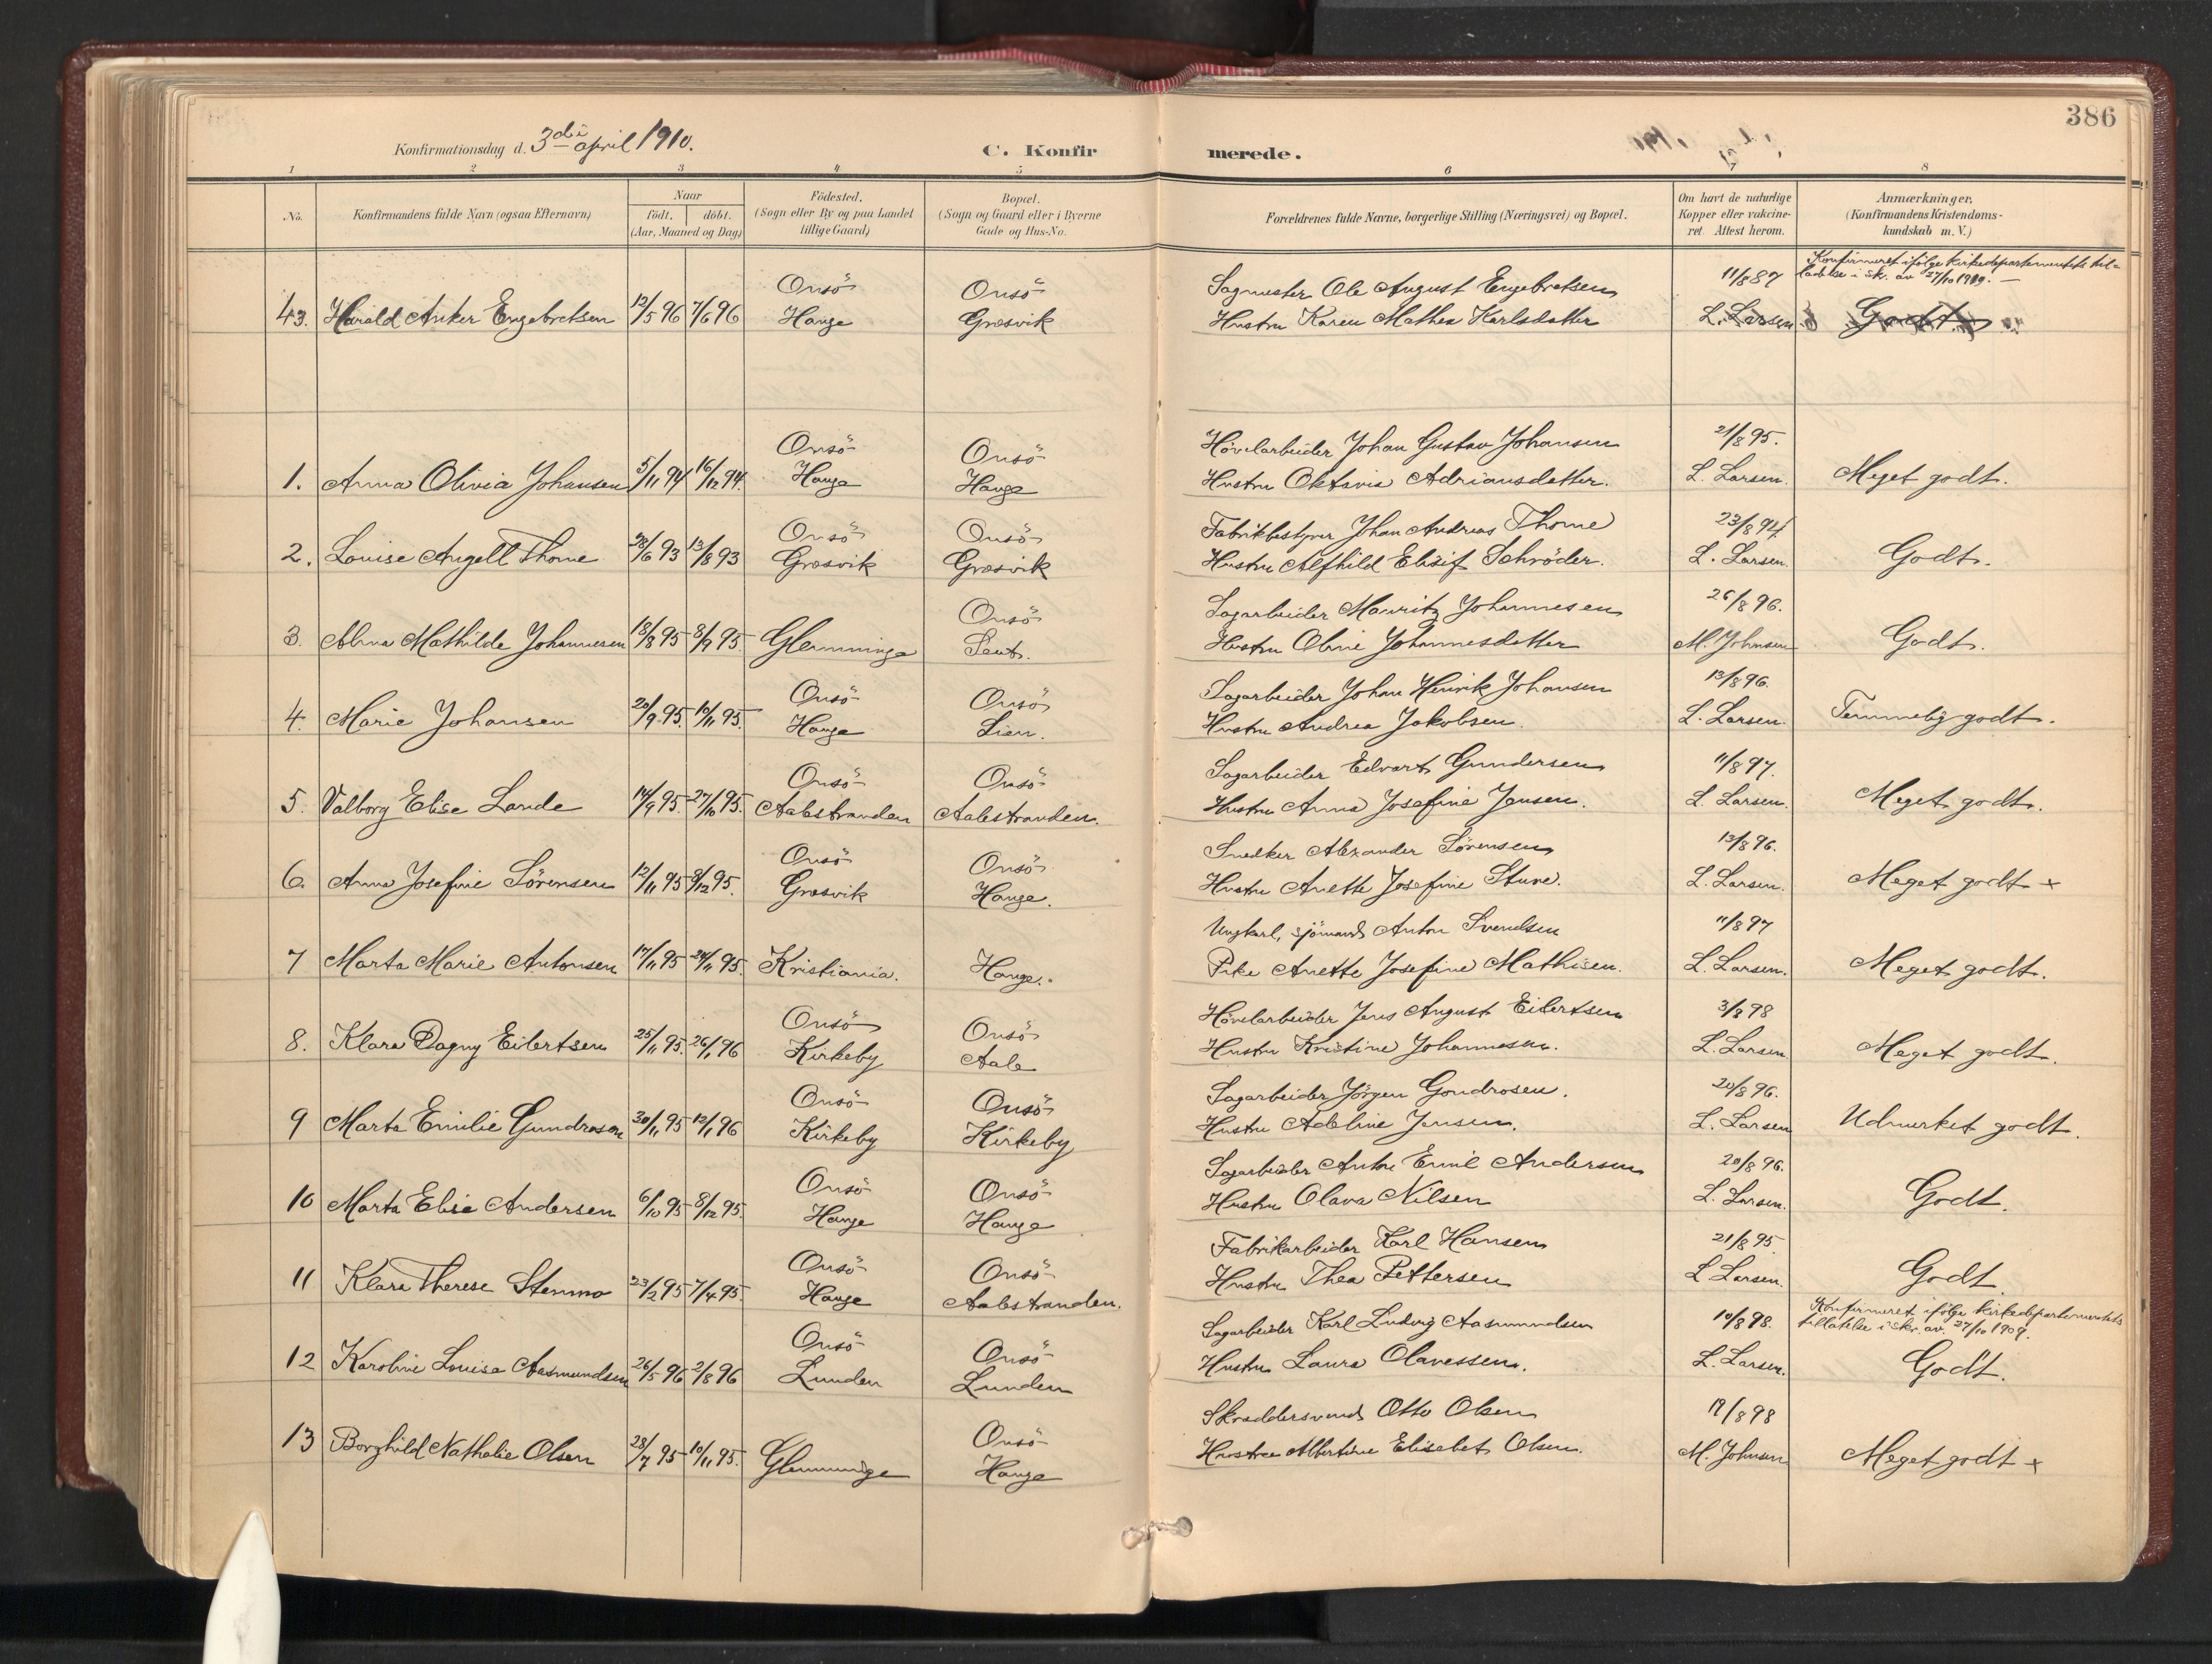 386
Konfirmationsdag d. 3die april 1910.
C. Konfirmerede.
1 2 3 4 5 6 7 8
No.
Konfirmandens fulde Navn (ogsaa Efternavn)
Naar
födt. döbt.
(Aar, Maaned og Dag)
Födested.
(Sogn eller By og paa Landet
tillige Gaard)
Bopæl.
(Sogn og Gaard eller i Byerne
Gade og Hus-No.
Forældrenes fulde Navne, borgerlige Stilling (Næringsvei) og Bopæl.
Om havt de naturlige
Kopper eller vakcine-
ret. Attest herom.
Anmærkninger,
(Konfirmandens Kristendoms-
kundskab m. V.)
Konfirmeret ifölge kirkedepartementets til-
ladelse i sk. av 27/10 1909. —
Onsö Onsö Sagmester Ole August Engebretsen 11/8 87
43. Harald Anker Engebretsen 12/5 96 7/6 96 Hauge Græsvik Hustru Karen Mathea Karlsdatter L. Larsen Godt
Onsö Onsö Hövelarbeider Johan Gustav Johansen 21/8 95.
1. Anna Olivia Johansen 5/11 94 16/12 94. Hauge Hauge Hustru Oktavia Adriansdatter. L. Larsen. Meget godt.
Onsö Onsö Fabrikbestyrer Johan Andreas Thorne 23/8 94
2. Louise Angell Thorne 28/6 93 13/8 93 Græsvik Græsvik Hustru Alfhild Elisif Schröder. L. Larsen. Godt.
Onsö Sagarbeider Mauritz Johannesen 26/8 96.
3. Alma Mathilde Johannesen 18/8 95 8/9 95. Glemminge Hustru Oline Johannesdatter M. Johnsen Godt.
Onsö Onsö Sagarbeider Johan Henrik Johansen 13/8 96.
4. Marie Johansen 20/9 95. 10/11 95. Hauge Lien. Hustru Andrea Jakobsen. L. Larsen. Temmelig godt.
Onsö Onsö Sagarbeider Edvart Gundersen 11/8 97.
5. Valborg Elise Lande 14/9 95. 27/10 95. Aalestranden Aalestranden. Hustru Anna Josefine Jensen. L. Larsen. Meget godt.
Onsö Onsö Snedker Alexander Sörensen 13/8 96.
6. Anna Josefine Sörensen 12/11 95 8/12 95. Græsvik Hauge. Hustru Anette Josefine Sture. L. Larsen. Meget godt +
Ungkarl, sjömand Anton Svendsen 11/8 97
7 Marta Marie Antonsen 17/11 95 24/11 95. Kristiania. Hauge. Pike Anette Josefine Mathisen. L. Larsen. Meget godt.
Onsö Onsö Hövelarbeider Jens August Eilertsen 3/8 98
8. Klara Dagny Eilertsen 25/11 95. 26/1 96 Kirkeby Aale Hustru Kristine Johannesen. L. Larsen Meget godt.
Onsö Onsö Sagarbeider Jörgen Gondrosen. 20/8 96.
9 Marta Emilie Gundrosen 30/11 95 12/1 96 Kirkeby Kirkeby Hustru Adeline Jensen. L. Larsen Udmerket godt.
Onsö Onsö Sagarbeider Anton Emil Andersen 20/8 96.
10 Marta Elise Andersen 6/10 95 8/12 95. Hauge Hauge Hustru Olava Nilsen L. Larsen. Godt.
Onsö Onsö Fabrikarbeider Karl Hansen 21/8 95.
11 Klara Therese Stenmo 23/2 95 7/4 95. Hauge Aalestranden. Hustru Thea Pettersen L. Larsen. Godt
Konfirmeret ifölge kirkedepartementets
tillatelse i skr. av. 27/10 1909.
Onsö Onsö Sagarbeider Karl Ludvig Aasmundsen 10/8 98.
12 Karoline Louise Aasmundsen 26/5 96 2/8 96 Lunden Lunden Hustru Laura Olavessen. L. Larsen. Godt.
Onsö Skræddersvend Otto Olsen 19/8 98
13 Borghild Nathalie Olsen 28/7 95 10/11 95. Glemminge Hauge Hustru Albertine Elisabet Olsen. M. Johnsen Meget godt +